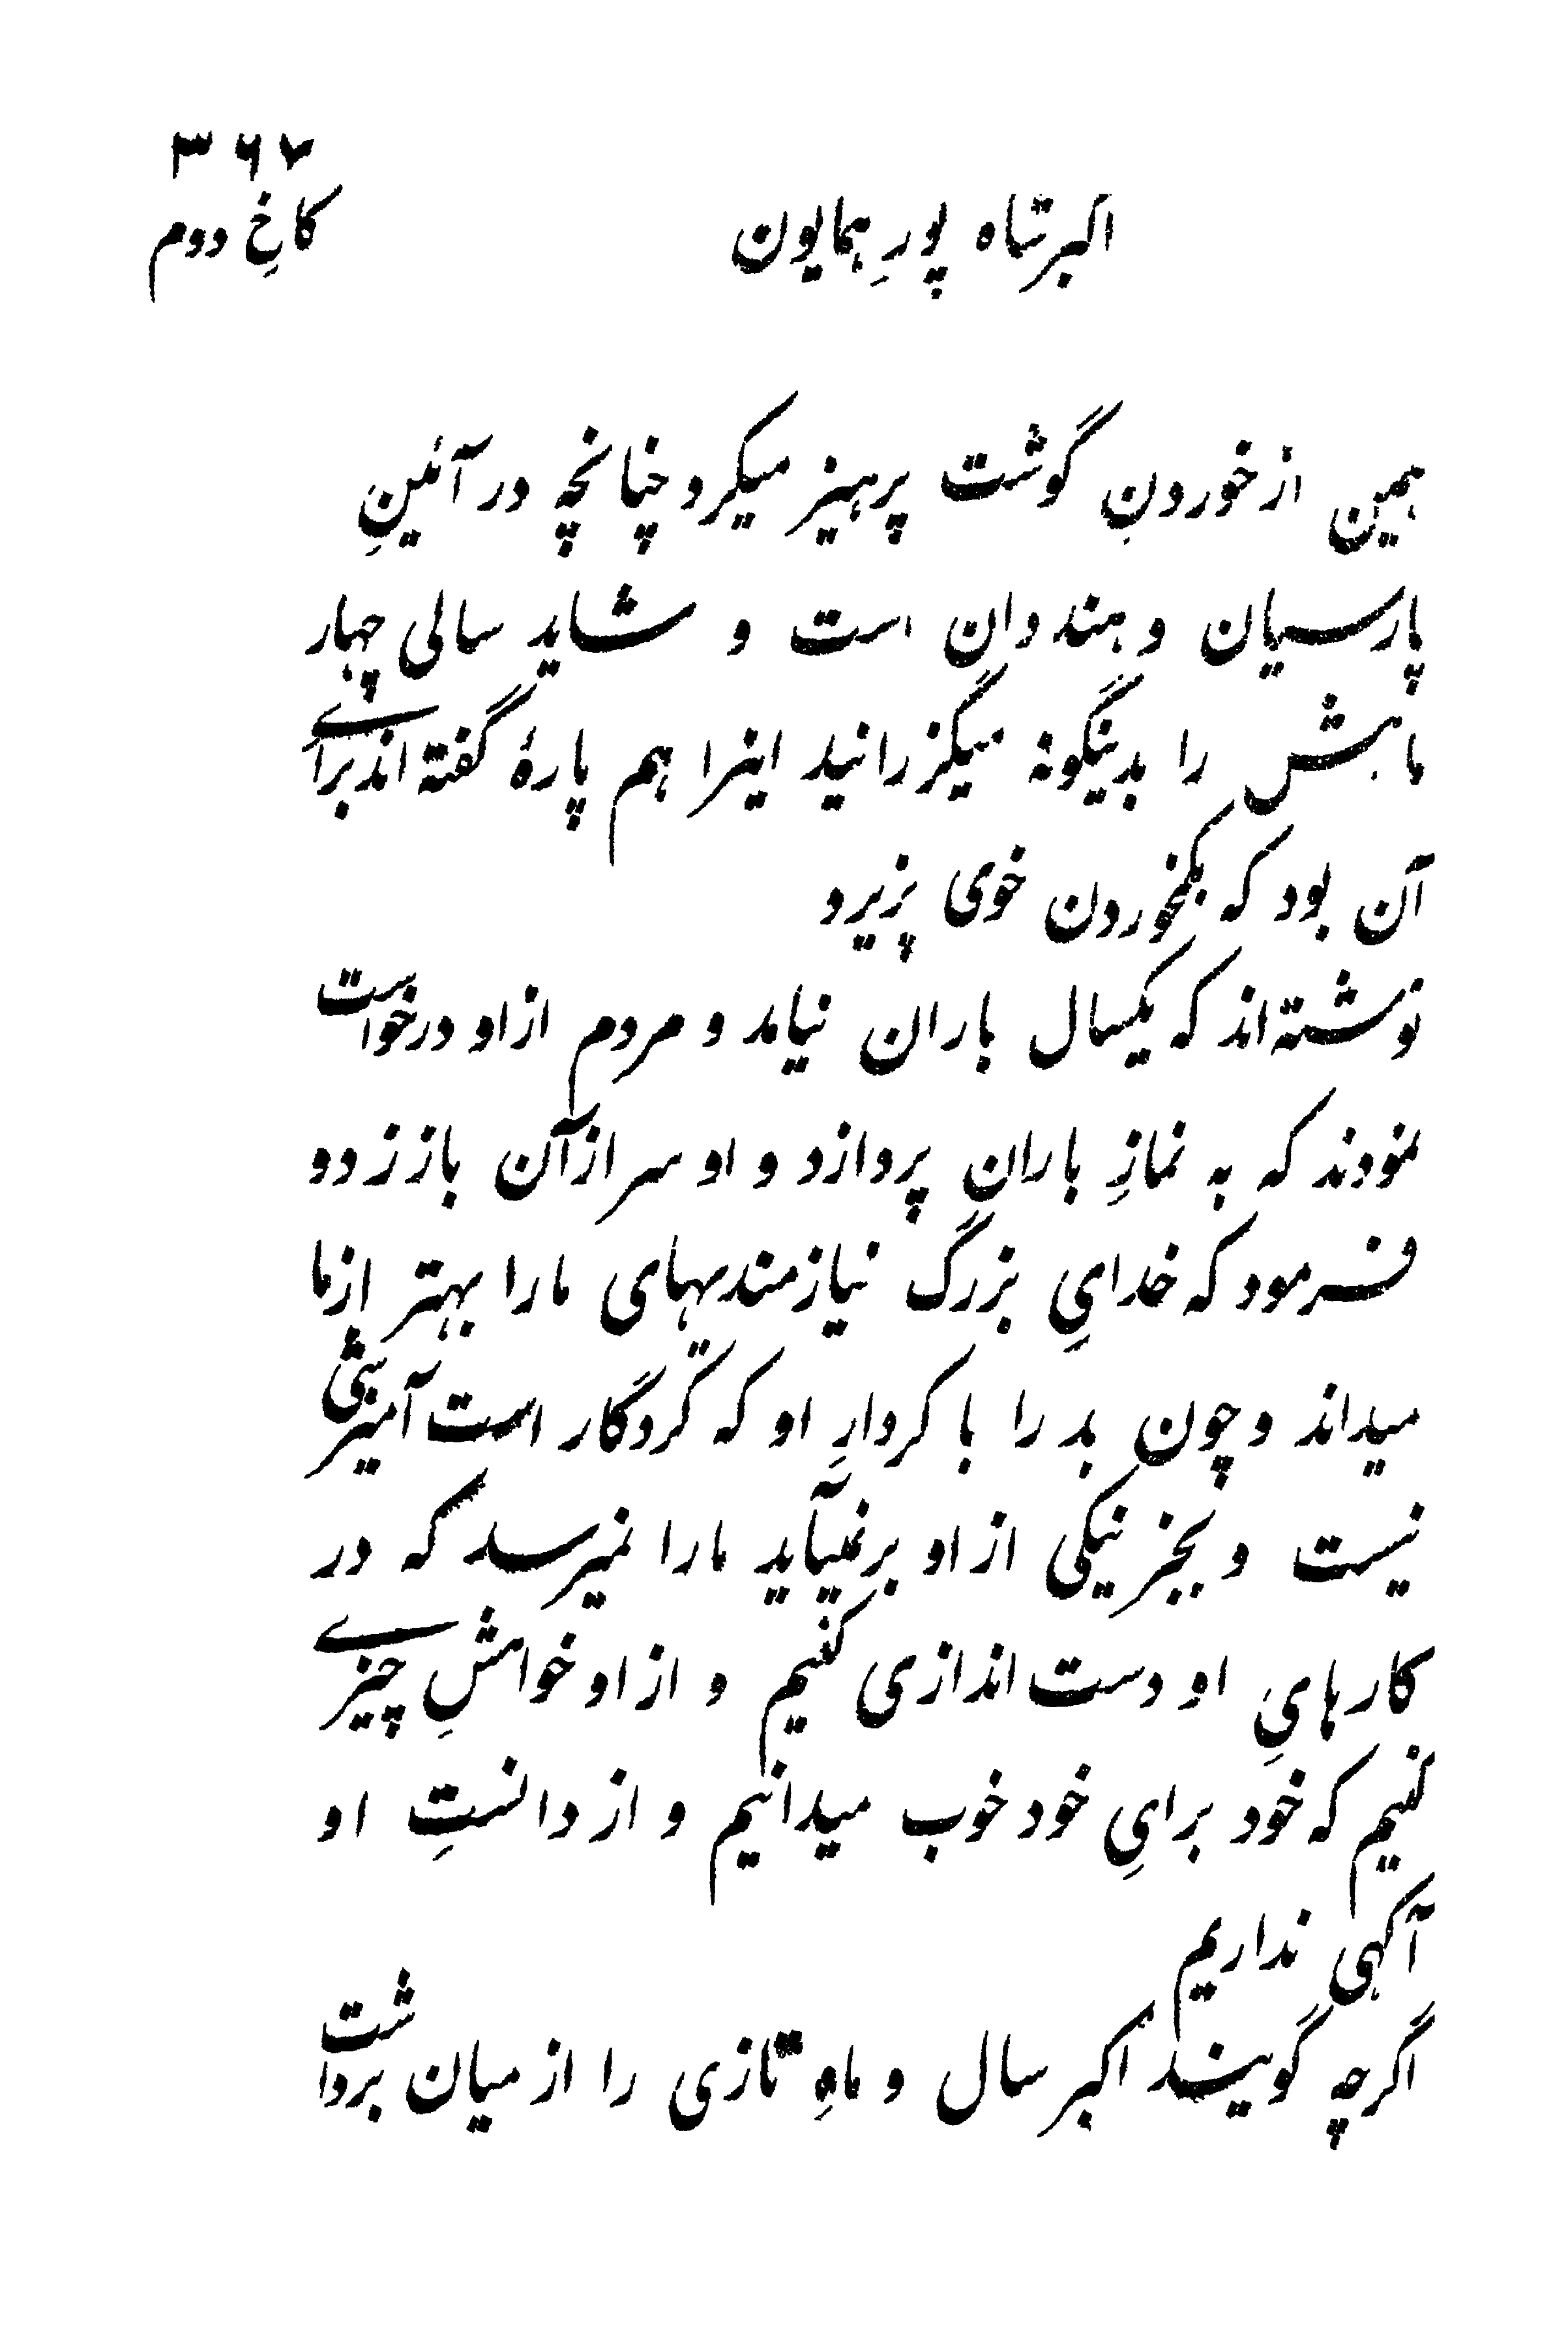 ۳۶۷
اکبر شاه پورِ همایون
کاخِ دوم
همین از خوردنِ گوشت پرهیز میکرد چنانچه در آئینِ
پارسیان و هندوان است و شاید سالی چهار
ماهش را بدینگونه میگزرانید اینرا هم پارهٔ گفته‌اند برائے
آن بود که بکمخوردن خوی پزیرد
نوشته‌اند که یکسال باران نیامد و مردم از او درخواست
نمودند که به نمازِ باران پردازد و او سر از آن باز زد و
فرمود که خدایِ بزرگ نیازمندیهای ما را بهتر از ما
میداند و چون بد را با کردارِ او که کردگار است آمیزشی
نیست و بجز نیکی از او بر نمیآید ما را نمیرسد که در
کارهایِ او دست اندازی کنیم و از او خواهشِ چیزے
کنیم که خود برایِ خود خوب میدانیم و از دانستِ او
آگهی نداریم
اگرچه گویند اکبر سال و ماهِ تازی را از میان برداشت